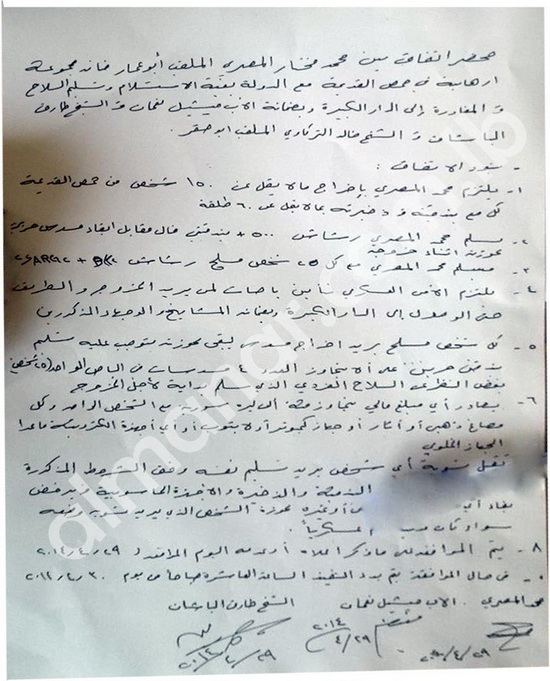 محضر اتفاق بين محمد مختار المصري الملقب أبو عمار قائد مجموعة
ارهابية في حمص القديمة مع الدولة بغية الاستسلام وتسليم السلاح
و المغادرة إلى الدار الكبيرة وبضمانة الأب ميشيل نعمان و الشيخ طارق
الباشات و الشيخ خالد التركاوي الملقب ابو صقر.
- بنود الاتفاق :
١- يلتزم محمد المصري بإخراج مالا يقل عن ١٥٠ شخص من حمص القديمة
كل مع بندقيته و ذخيرته بما لا يقل عن ٦٠ طلقة
٢- يسلم محمد المصري رشاش ٥٠٠ + بندقيتي مقابل ابقاء مسدس حربي
بحوزته اثناء خروجه
٣- يسلم محمد المصري مع كل ٢٥ شخص مسلح رشاش
٤- يلتزم الأمن العسكري بتأمين باصات لمن يريد الخروج و الطريق
حتى الوصول إلى الدار الكبيرة وبضمانة المشايخ والوجهاء المذكورين
٥- كل شخص مسلح يريد اخراج مسدس يبقى بحوزته يتوجب عليه تسليم
بندقيتين حربيتين على ألا يتجاوز العدد ٤ مسدسات في الباص الواحد (٢٥ شخص)
بغض النظر عن السلاح الفردي الذي سلم بداية لأجل الخروج
٦- يصادر أي مبلغ مالي يتجاوز مئة ألف ليرة سورية مع الشخص الواحد وكل
مصاغ ذهبي أو آثار أو جهاز كمبيوتر أو لابتوب أو أي أجهزة الكترونية ماعدا
الجهاز الخلوي
تقبل تسوية أي شخص يريد تسليم نفسه وفق الشروط المذكورة
البندقية والذخيرة والأجهزة الحاسوبية ويرفض
بقاء أي من أو غيره بحوزة الشخص الذي يريد تسوية وضعه
سواء كان عسكرياً.
٨- يتم الموافقة على ما ذكر أعلاه أو عدمه اليوم الموافق لـ ٢٠١٤/٤/٢٩
في حال الموافقة يتم بدء التنفيذ الساعة العاشرة صباحاً من يوم ٣٠
محمد المصري . الأب ميشيل نعمان الشيخ طارق الباشات
٢٠١٤
٤/٢٩
almanar.com.lb